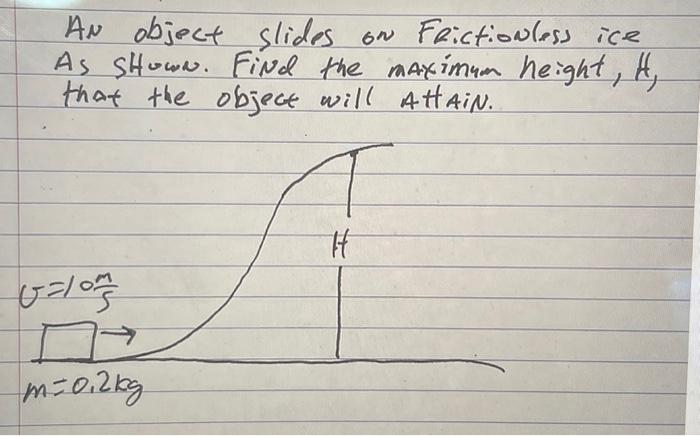 AN object slides on Frictionless ice
As shown. Find the maximum height, H,
that the object will AttAiN.
H
v=10 m/s
m=0.2kg